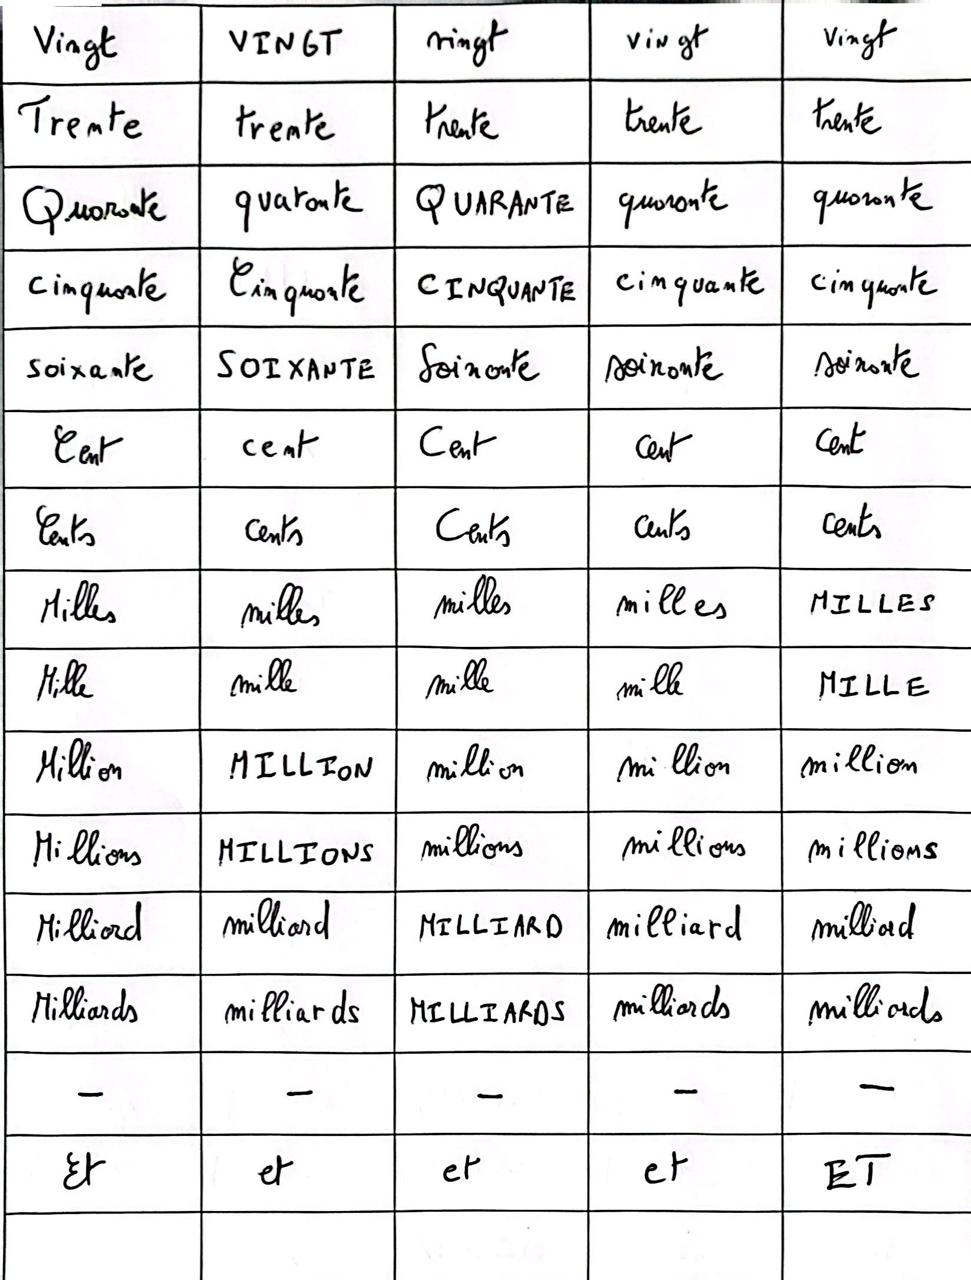 Vingt VINGT vingt vingt vingt
Trente trente trente trente trente
Quarante quarante QUARANTE quarante quarante
cinquante Cinquante CINQUANTE cinquante cinquante
soixante SOIXANTE Soixante soixante soixante
Cent cent Cent cent cent
Cents cents Cents cents cents
Milles milles milles milles MILLES
Mille mille mille mille MILLE
Million MILLION million million million
Millions MILLIONS millions millions millions
Milliard milliard MILLIARD milliard milliard
Milliards milliards MILLIARDS milliards milliards
– – – – –
Et et et et ET